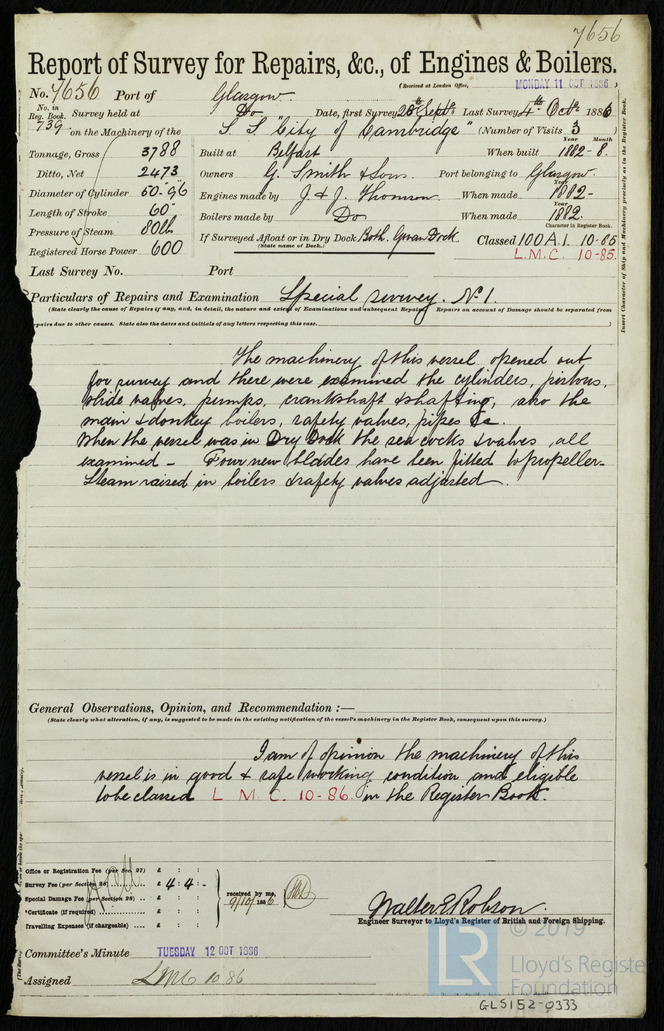 7656
Report of Survey for Repairs, &c., of Engines & Boilers.
(Received at London Office, MONDAY 11 OCT 1886)
No. 7656 Port of Glasgow
No. in Reg. Book. 739 Survey held at Do Date, first Survey 28th Septr Last Survey 4th Octr 1886
on the Machinery of the S.S. "City of Cambridge" (Number of Visits 3
Tonnage, Gross 3788 Built at Belfast When built Year 1882 - Month 8.
Ditto, Net 2473 Owners G. Smith & Sons Port belonging to Glasgow
Diameter of Cylinder 50"-96" Engines made by J. & J. Thomson When made Year 1882-
Length of Stroke 60" Boilers made by Do When made Year 1882.
Pressure of Steam 80lb If Surveyed Afloat or in Dry Dock Both. Govan Dock. Classed Character in Register Book. 100 A.1. 10-85
(State name of Dock.) L.M.C. 10-85.
Registered Horse Power 600
Last Survey No. Port
Insert Character of Ship and Machinery precisely as in the Register Book.
Particulars of Repairs and Examination Special survey. No. 1.
(State clearly the cause of Repairs if any, and, in detail, the nature and extent of Examinations and subsequent Repairs. Repairs on account of Damage should be separated from
repairs due to other causes. State also the dates and initials of any letters respecting this case. )
The machinery of this vessel opened out
for survey and there were examined the cylinders, pistons,
slide valves, pumps, crankshaft & shafting, also the
main & donkey boilers, safety valves, pipes &c.
When the vessel was in Dry Dock the sea cocks & valves, all
examined - Four new blades have been fitted to propeller.
Steam raised in boilers & safety valves adjusted.
General Observations, Opinion, and Recommendation :—
(State clearly what alteration, if any, is suggested to be made in the existing notification of the vessel's machinery in the Register Book, consequent upon this survey.)
I am of opinion the machinery of this
vessel is in good & safe working condition and eligible
to be classed L.M.C. 10-86. in the Register Book.
Office or Registration Fee (per Sec. 27) £ : :
Survey Fee (per Section 28) £ 4 : 4 : -
Special Damage Fee (per Section 28) £ : :
*Certificate (if required) £ : :
Travelling Expenses (if chargeable) £ : :
received by me, 9/10/1886
Walter E. Robson
Engineer Surveyor to Lloyd's Register of British and Foreign Shipping.
Committee's Minute TUESDAY 12 OCT 1886
Assigned LMC 10 86
LR © 2019
Lloyd's Register
Foundation
GLS152-0333